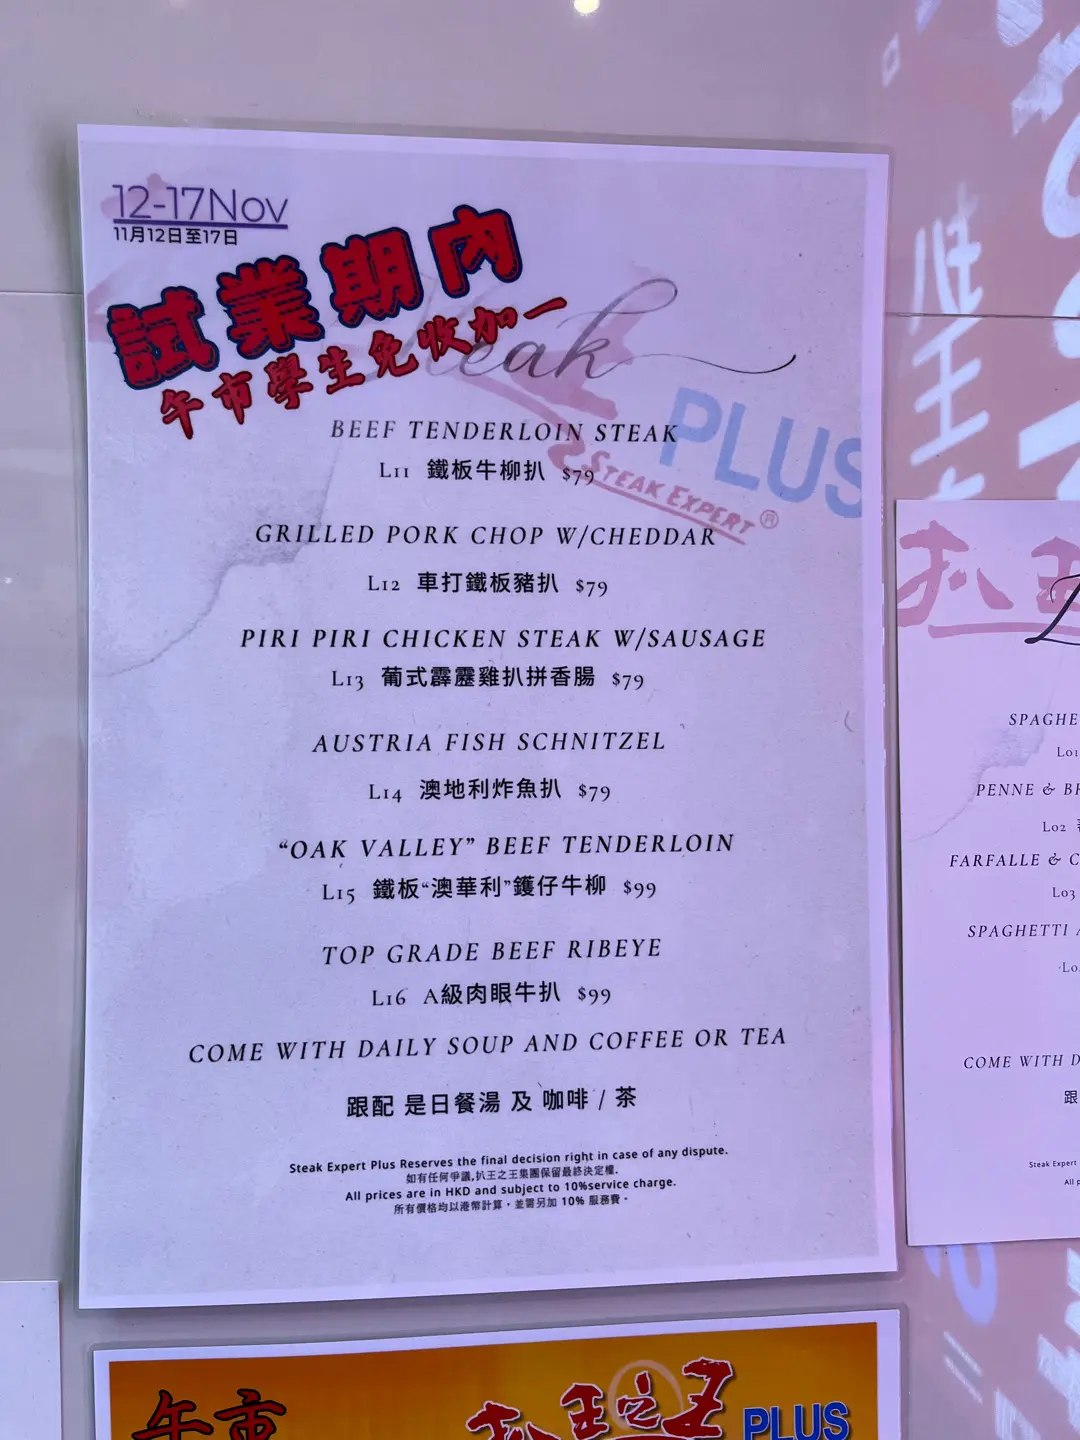 12-17Nov
11月12日至17日
試業期內
午市學生免收加一
Steak
PLUS
STEAK EXPERT ®
BEEF TENDERLOIN STEAK
L11 鐵板牛柳扒 $79
GRILLED PORK CHOP W/CHEDDAR
L12 車打鐵板豬扒 $79
PIRI PIRI CHICKEN STEAK W/SAUSAGE
L13 葡式霹靂雞扒拼香腸 $79
AUSTRIA FISH SCHNITZEL
L14 澳地利炸魚扒 $79
“OAK VALLEY” BEEF TENDERLOIN
L15 鐵板“澳華利”鑊仔牛柳 $99
TOP GRADE BEEF RIBEYE
L16 A級肉眼牛扒 $99
COME WITH DAILY SOUP AND COFFEE OR TEA
跟配 是日餐湯 及 咖啡 / 茶
Steak Expert Plus Reserves the final decision right in case of any dispute.
如有任何爭議,扒王之王集團保留最終決定權.
All prices are in HKD and subject to 10%service charge.
所有價格均以港幣計算，並需另加 10% 服務費。
扒王
SPAGHE
L01
PENNE & B
L02
FARFALLE & C
L03
SPAGHETTI
COME WITH D
跟
Steak Expert
All p
午市
扒王之王 PLUS